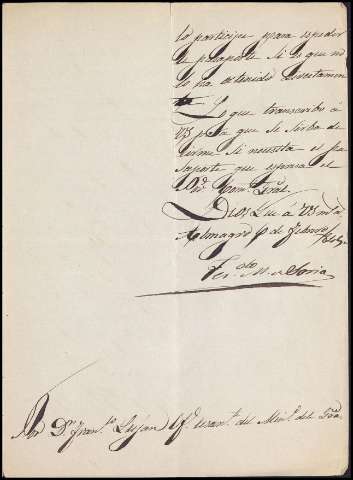 lo participe para espedir
le pasaporte si es que no
lo ha obtenido directamen
te
Lo que transcribo á
VS para que se sirba de
cirme si necesita el pa
saporte que espresa el
Sor. Com.e Gral.
Dios Gue. á VS m.s a.s
Almagro 6 de Febrero
Fer.do M. de Soria
Sor. Dn. Fran.co Luján Of.l del Min.o de la